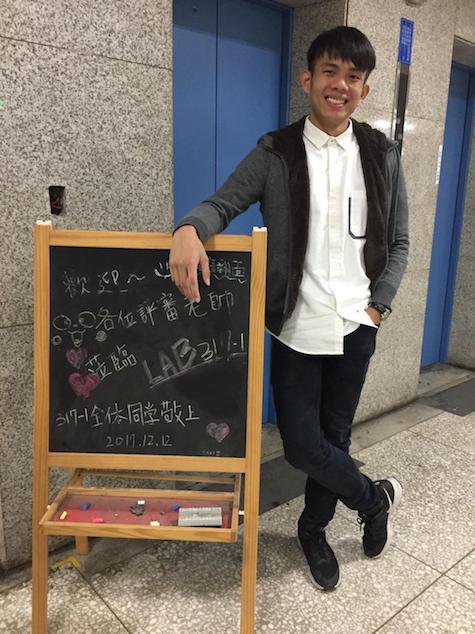 歡迎
各位評審老師
蒞臨 LAB 317-1
317-1全体同学敬上
2017.12.12